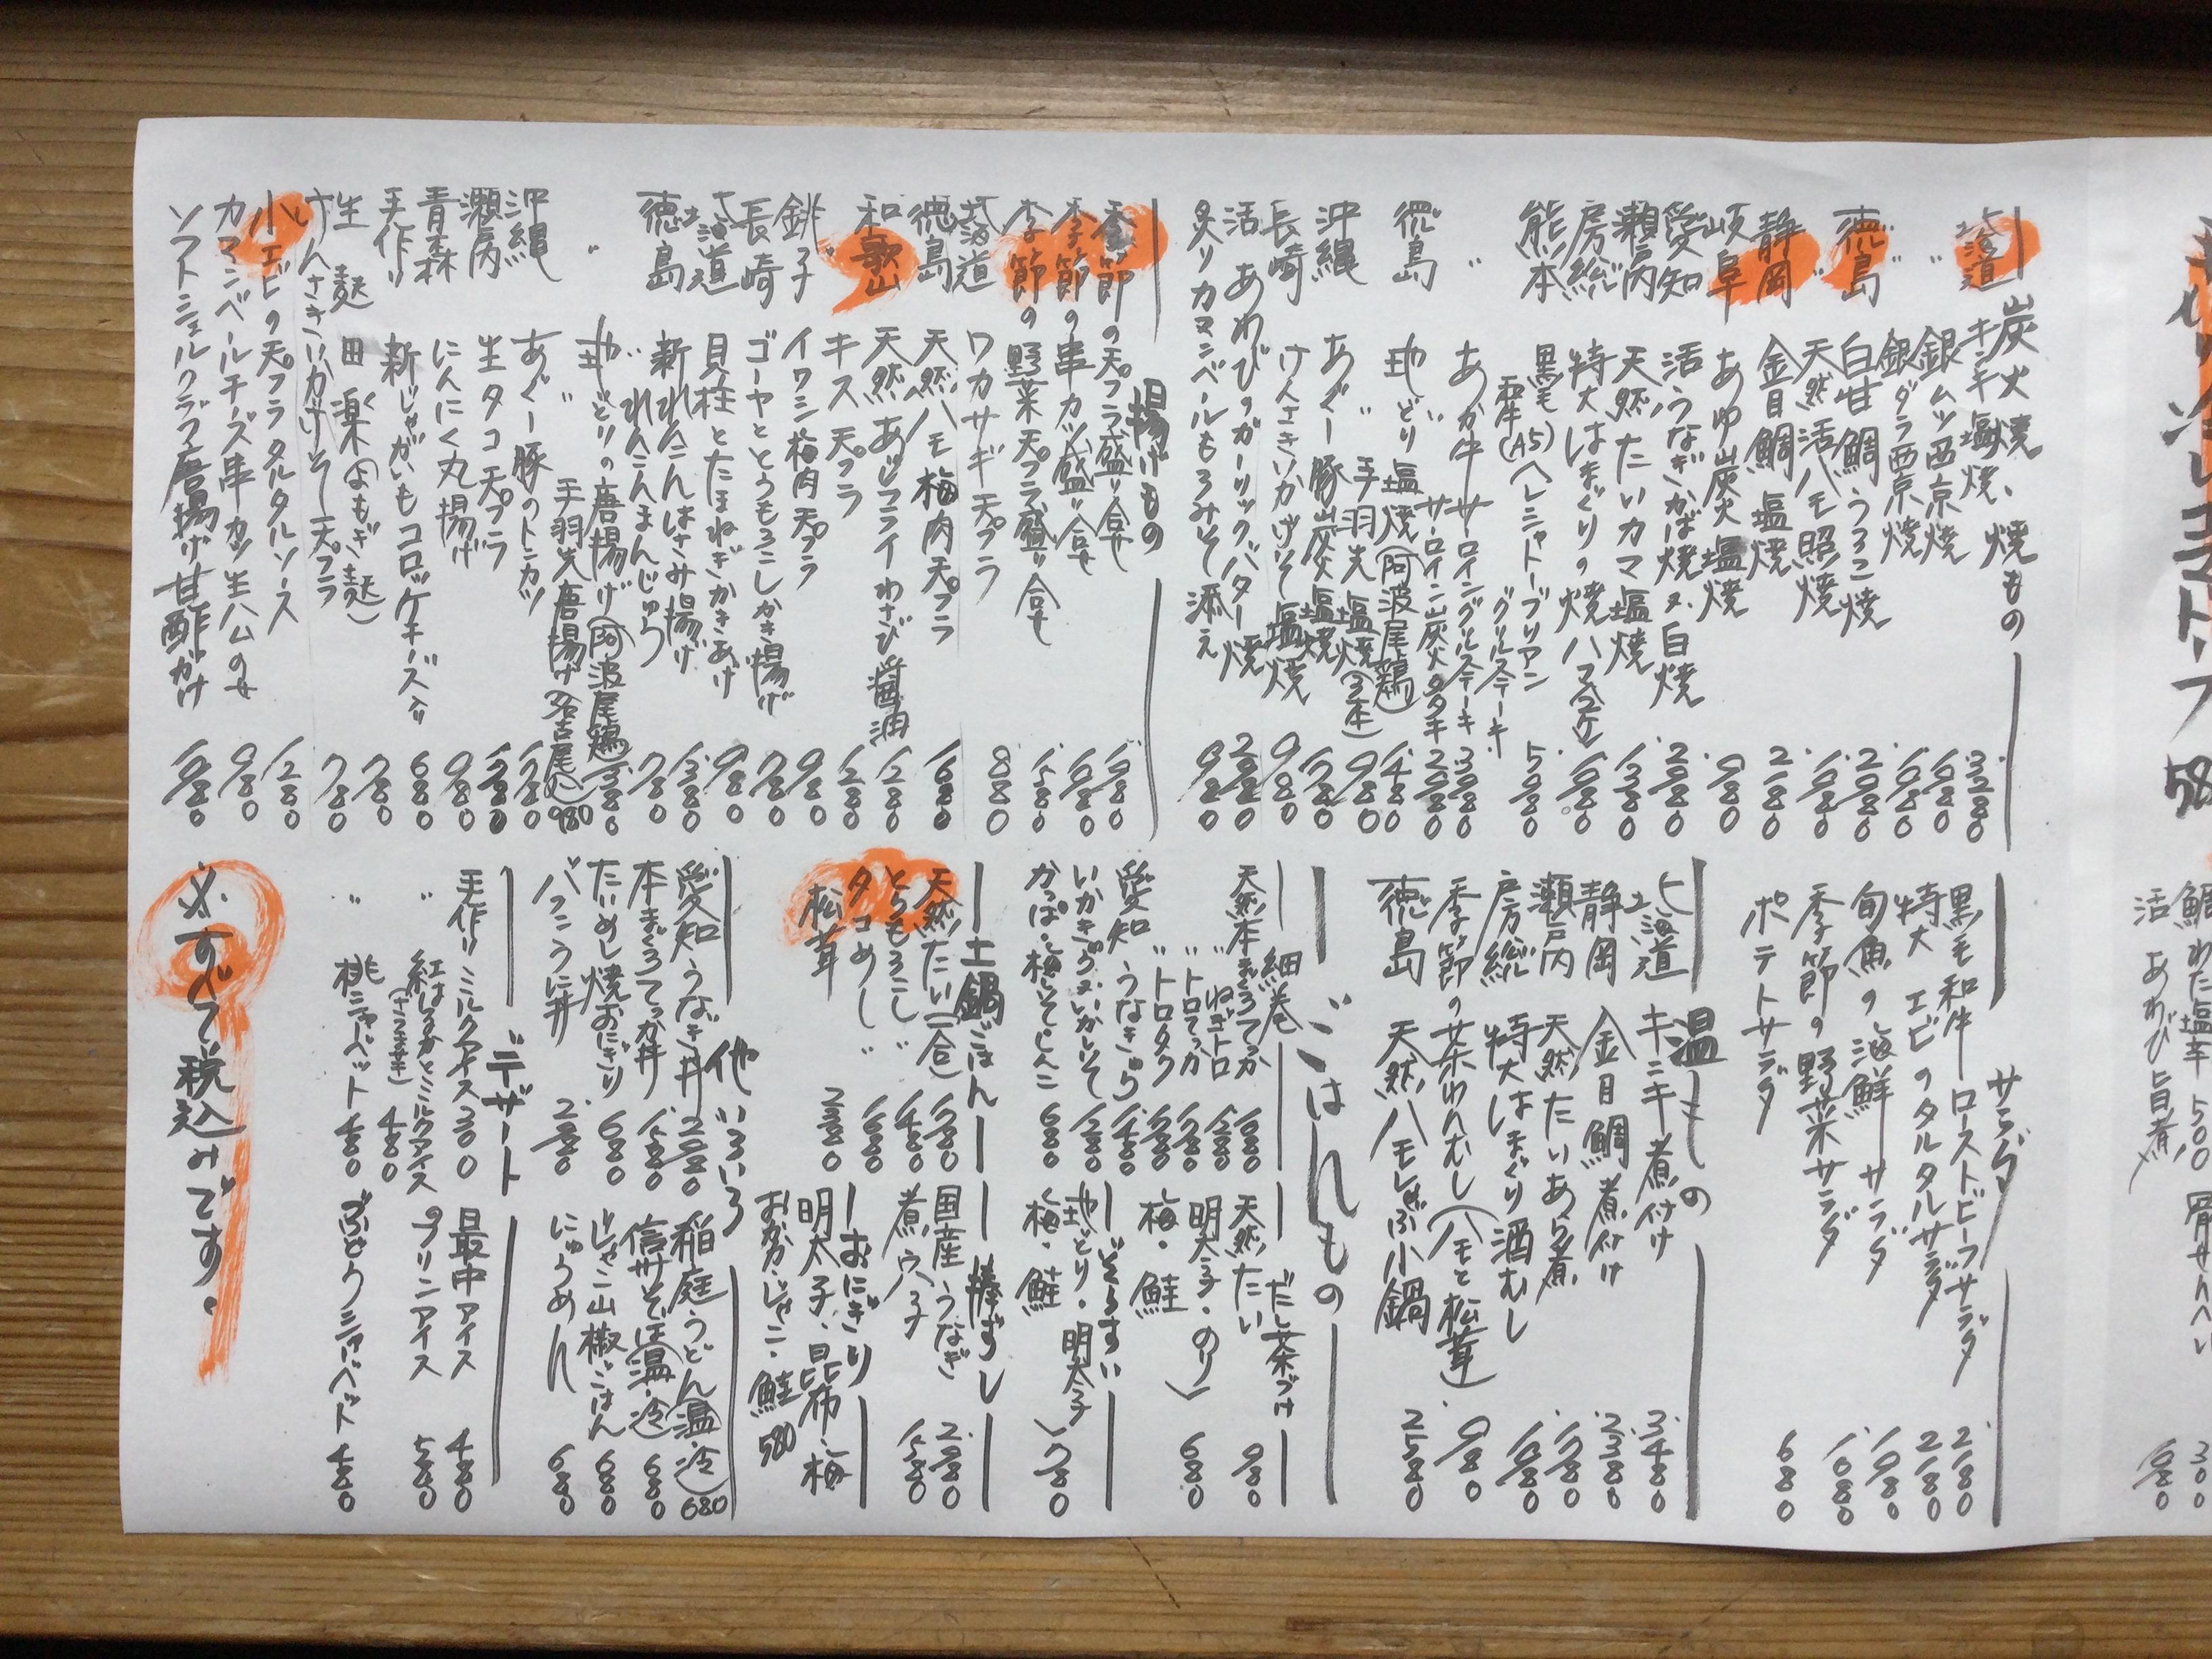 炭火焼、焼もの
北海道 キンキ塩焼 3280
〃 銀ムツ西京焼 1680
〃 銀ダラ西京焼 1680
徳島 白甘鯛うろこ焼 2980
〃 天然活ハモ照焼 1980
静岡 金目鯛塩焼 2180
岐阜 あゆ炭火塩焼 980
愛知 活うなぎかば焼又、白焼 2980
瀬戸内 天然たいカマ塩焼 1380
房総 特大はまぐりの焼ハマ
熊本 黒毛
和牛(A5)ヘレシャトーブリアン
グリルステーキ 5980
〃 あか牛サーロイングリルステーキ 3980
サーロイン炭火タタキ 2980
徳島 地どり塩焼(阿波尾鶏) 1480
〃 手羽先塩焼(3本) 980
沖縄 あぐー豚炭火塩焼 1780
長崎 けんさきいかげそ塩焼 980
活あわびのガーリックバター焼
炙りカマンベールもろみそ添え
揚げもの
季節の天プラ盛り合せ
季節の串カツ盛り合せ
季節の野菜天プラ盛り合せ
北海道 ワカサギ天プラ 880
徳島 天然ハモ梅肉天プラ 1680
和歌山 天然あじフライわさび醤油 1280
〃 キス天プラ 1280
銚子 イワシ梅肉天プラ 980
長崎 ゴーヤととうもろこしかき揚げ 780
北海道 貝柱とたまねぎかきあげ 980
徳島 新れんこんはさみ揚げ 1380
〃 れんこんまんじゅう 780
〃 地どりの唐揚げ(阿波尾鶏) 1380
〃 手羽先唐揚げ 980
沖縄 あぐー豚のトンカツ 1780
瀬戸内 生タコ天プラ
青森 にんにく丸揚げ 980
手作り 新じゃがいもコロッケチーズ入り 680
生麩 田楽(よもぎ麩) 780
けんさきいかげそ天プラ 780
小エビの天プラタルタルソース 1280
カマンベールチーズ串カツ生ハムのせ 980
ソフトシェルクラブ唐揚げ甘酢がけ
サラダ
黒毛和牛ローストビーフサラダ 2180
特大エビのタルタルサラダ 2180
旬魚の海鮮サラダ 1980
季節の野菜サラダ 1080
ポテトサラダ 680
温もの
北海道 キンキ煮付け 3480
静岡 金目鯛煮付け 2380
瀬戸内 天然たいあら煮 1780
房総 特大はまぐり酒むし
季節の茶わんむし(ハモと松茸) 980
徳島 天然ハモしゃぶ小鍋 2580
ごはんもの
細巻
天然本まぐろてっか 1680
〃 ねぎトロ 1280
〃 トロてっか
〃 トロタク
愛知 うなきゅう 1480
いかきゅう又、いかしそ 1280
かっぱ・梅しそ・しんこ 680
だし茶づけ
天然たい 980
明太子・のり
梅・鮭 680
ぞうすい
地どり・明太子
梅・鮭 780
土鍋ごはん
天然たい(二合)
とうもろこし〃 1480
タコめし〃 1680
松茸 2980
棒ずし
国産うなぎ 2980
煮穴子 1580
おにぎり
明太子・昆布・梅
おかか・じゃこ・鮭 580
他いろいろ
愛知うなぎ丼 2980
本まぐろてっか丼 1580
たいめし焼おにぎり 680
バフンうに丼
稲庭うどん(温・冷) 680
信州そば(温・冷) 680
じゃこ山椒ごはん 680
にゅうめん 680
デザート
手作り ミルクアイス 300
〃 紅はるかとミルクアイス
(さつま芋) 480
〃 桃シャーベット 480
最中アイス 480
プリンアイス 580
ぶどうシャーベット 480
※すべて税込みです。
580
鯛わた塩辛 500
活あわび旨煮
骨せんべい 300